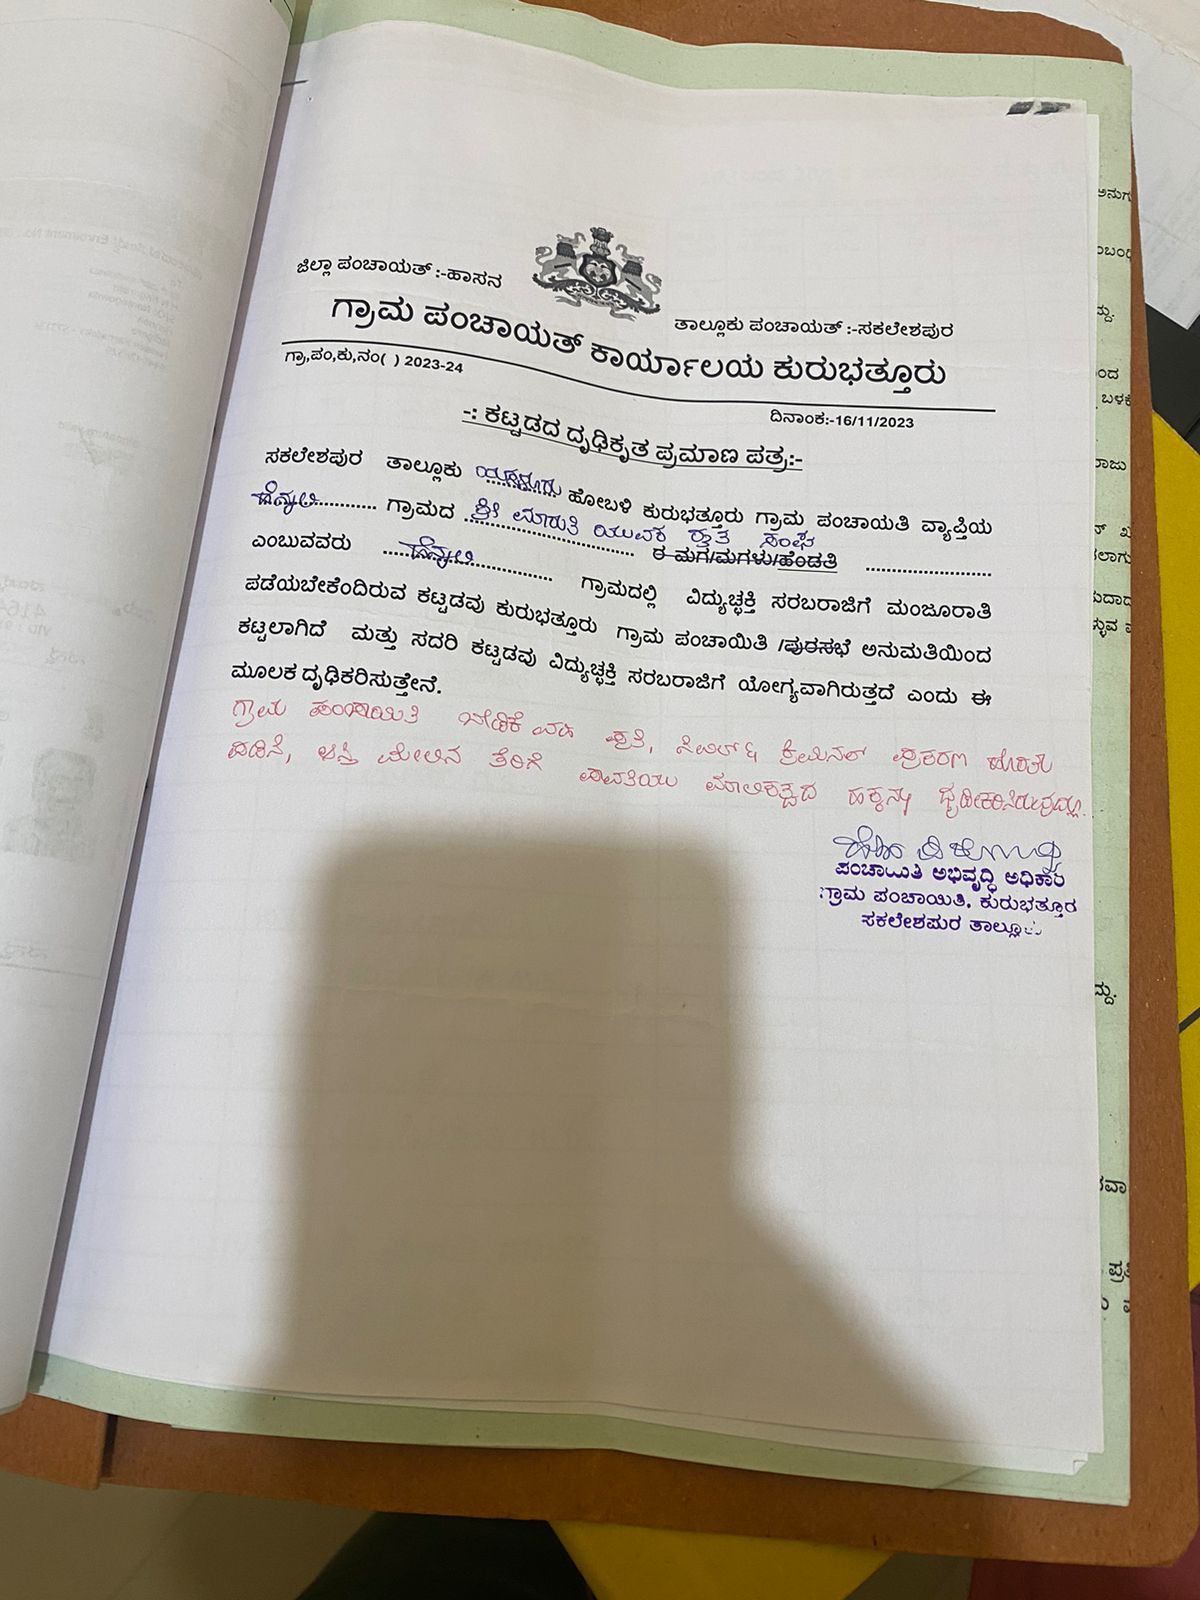 ಜಿಲ್ಲಾ ಪಂಚಾಯತ್ :-ಹಾಸನ
ತಾಲ್ಲೂಕು ಪಂಚಾಯತ್ :-ಸಕಲೇಶಪುರ
ಗ್ರಾಮ ಪಂಚಾಯತ್ ಕಾರ್ಯಾಲಯ ಕುರುಭತ್ತೂರು
ಗ್ರಾ,ಪಂ,ಕು,ನಂ( ) 2023-24
ದಿನಾಂಕ:-16/11/2023
-: ಕಟ್ಟಡದ ದೃಢಿಕೃತ ಪ್ರಮಾಣ ಪತ್ರ:-
ಸಕಲೇಶಪುರ ತಾಲ್ಲೂಕು ಯಸಳೂರು ಹೋಬಳಿ ಕುರುಭತ್ತೂರು ಗ್ರಾಮ ಪಂಚಾಯತಿ ವ್ಯಾಪ್ತಿಯ
............ ಗ್ರಾಮದ ಶ್ರೀ ಮಾರುತಿ ಯುವಕ ರೈತ ಸಂಘ
ಎಂಬುವವರು ............ ಈ ಮಗ/ಮಗಳು/ಹೆಂಡತಿ ............
............ ಗ್ರಾಮದಲ್ಲಿ ವಿದ್ಯುಚ್ಛಕ್ತಿ ಸರಬರಾಜಿಗೆ ಮಂಜೂರಾತಿ
ಪಡೆಯಬೇಕೆಂದಿರುವ ಕಟ್ಟಡವು ಕುರುಭತ್ತೂರು ಗ್ರಾಮ ಪಂಚಾಯಿತಿ /ಪುರಸಭೆ ಅನುಮತಿಯಿಂದ
ಕಟ್ಟಲಾಗಿದೆ ಮತ್ತು ಸದರಿ ಕಟ್ಟಡವು ವಿದ್ಯುಚ್ಛಕ್ತಿ ಸರಬರಾಜಿಗೆ ಯೋಗ್ಯವಾಗಿರುತ್ತದೆ ಎಂದು ಈ
ಮೂಲಕ ದೃಢಿಕರಿಸುತ್ತೇನೆ.
ಗ್ರಾಮ ಪಂಚಾಯಿತಿ ಪ್ರತಿ, ಸಿವಿಲ್ & ಕ್ರಿಮಿನಲ್ ಪ್ರಕರಣ ಹೊರತು
ಪಡಿಸಿ, ಆಸ್ತಿ ಮೇಲಿನ ತೆರಿಗೆ ಪಾವತಿಯು ಮಾಲಿಕತ್ವದ ಹಕ್ಕನ್ನು ದೃಢೀಕರಿಸಿರುವುದಿಲ್ಲ.
ಪಂಚಾಯಿತಿ ಅಭಿವೃದ್ಧಿ ಅಧಿಕಾರಿ
ಗ್ರಾಮ ಪಂಚಾಯಿತಿ, ಕುರುಭತ್ತೂರ
ಸಕಲೇಶಪುರ ತಾಲ್ಲೂಕು